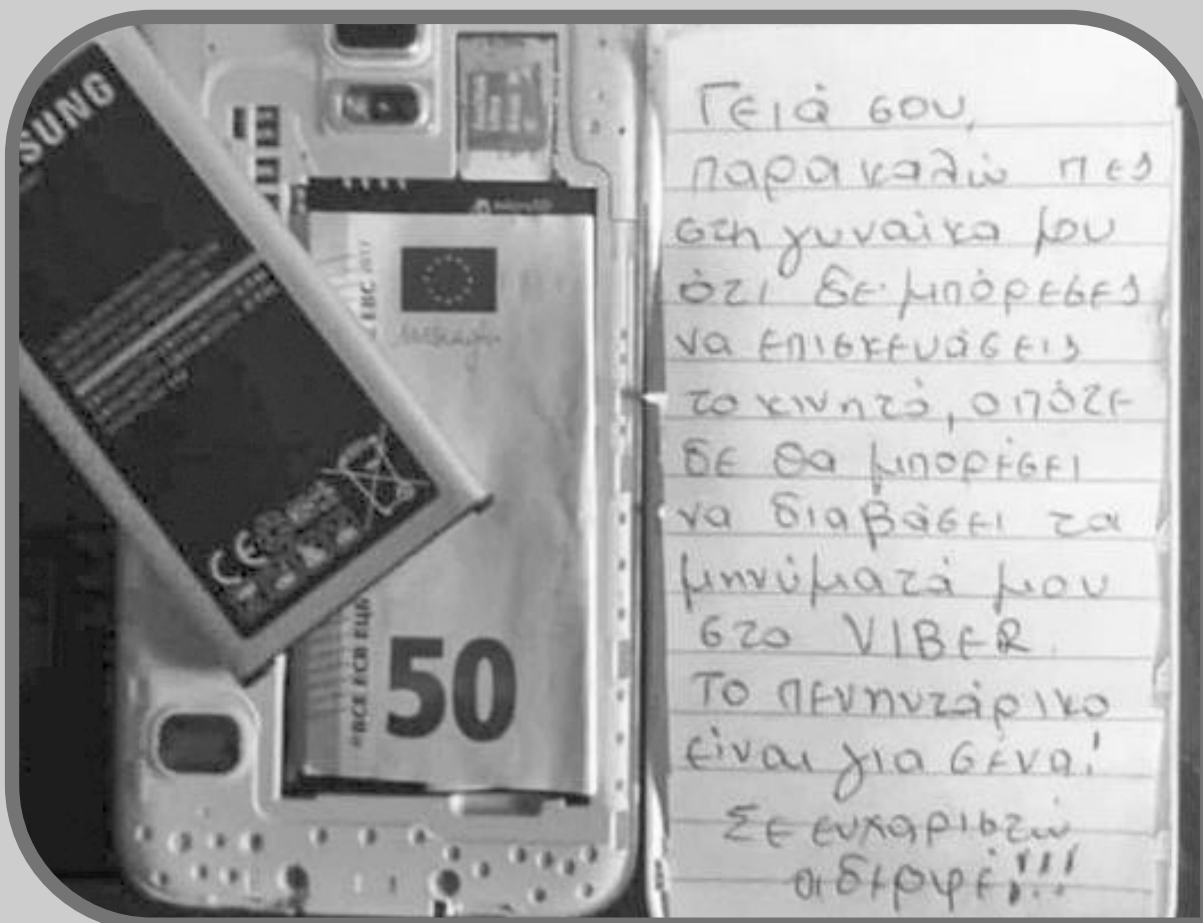 SUNG
CE
50
Γειά σου,
παρακαλώ πες
στη γυναίκα μου
ότι δε μπόρεσες
να επισκευάσεις
το κινητό, οπότε
δε θα μπορέσει
να διαβάσει τα
μηνύματά μου
στο VIBER.
Το πενηντάρικο
είναι για σένα!
Σε ευχαριστώ
αδερφέ!!!